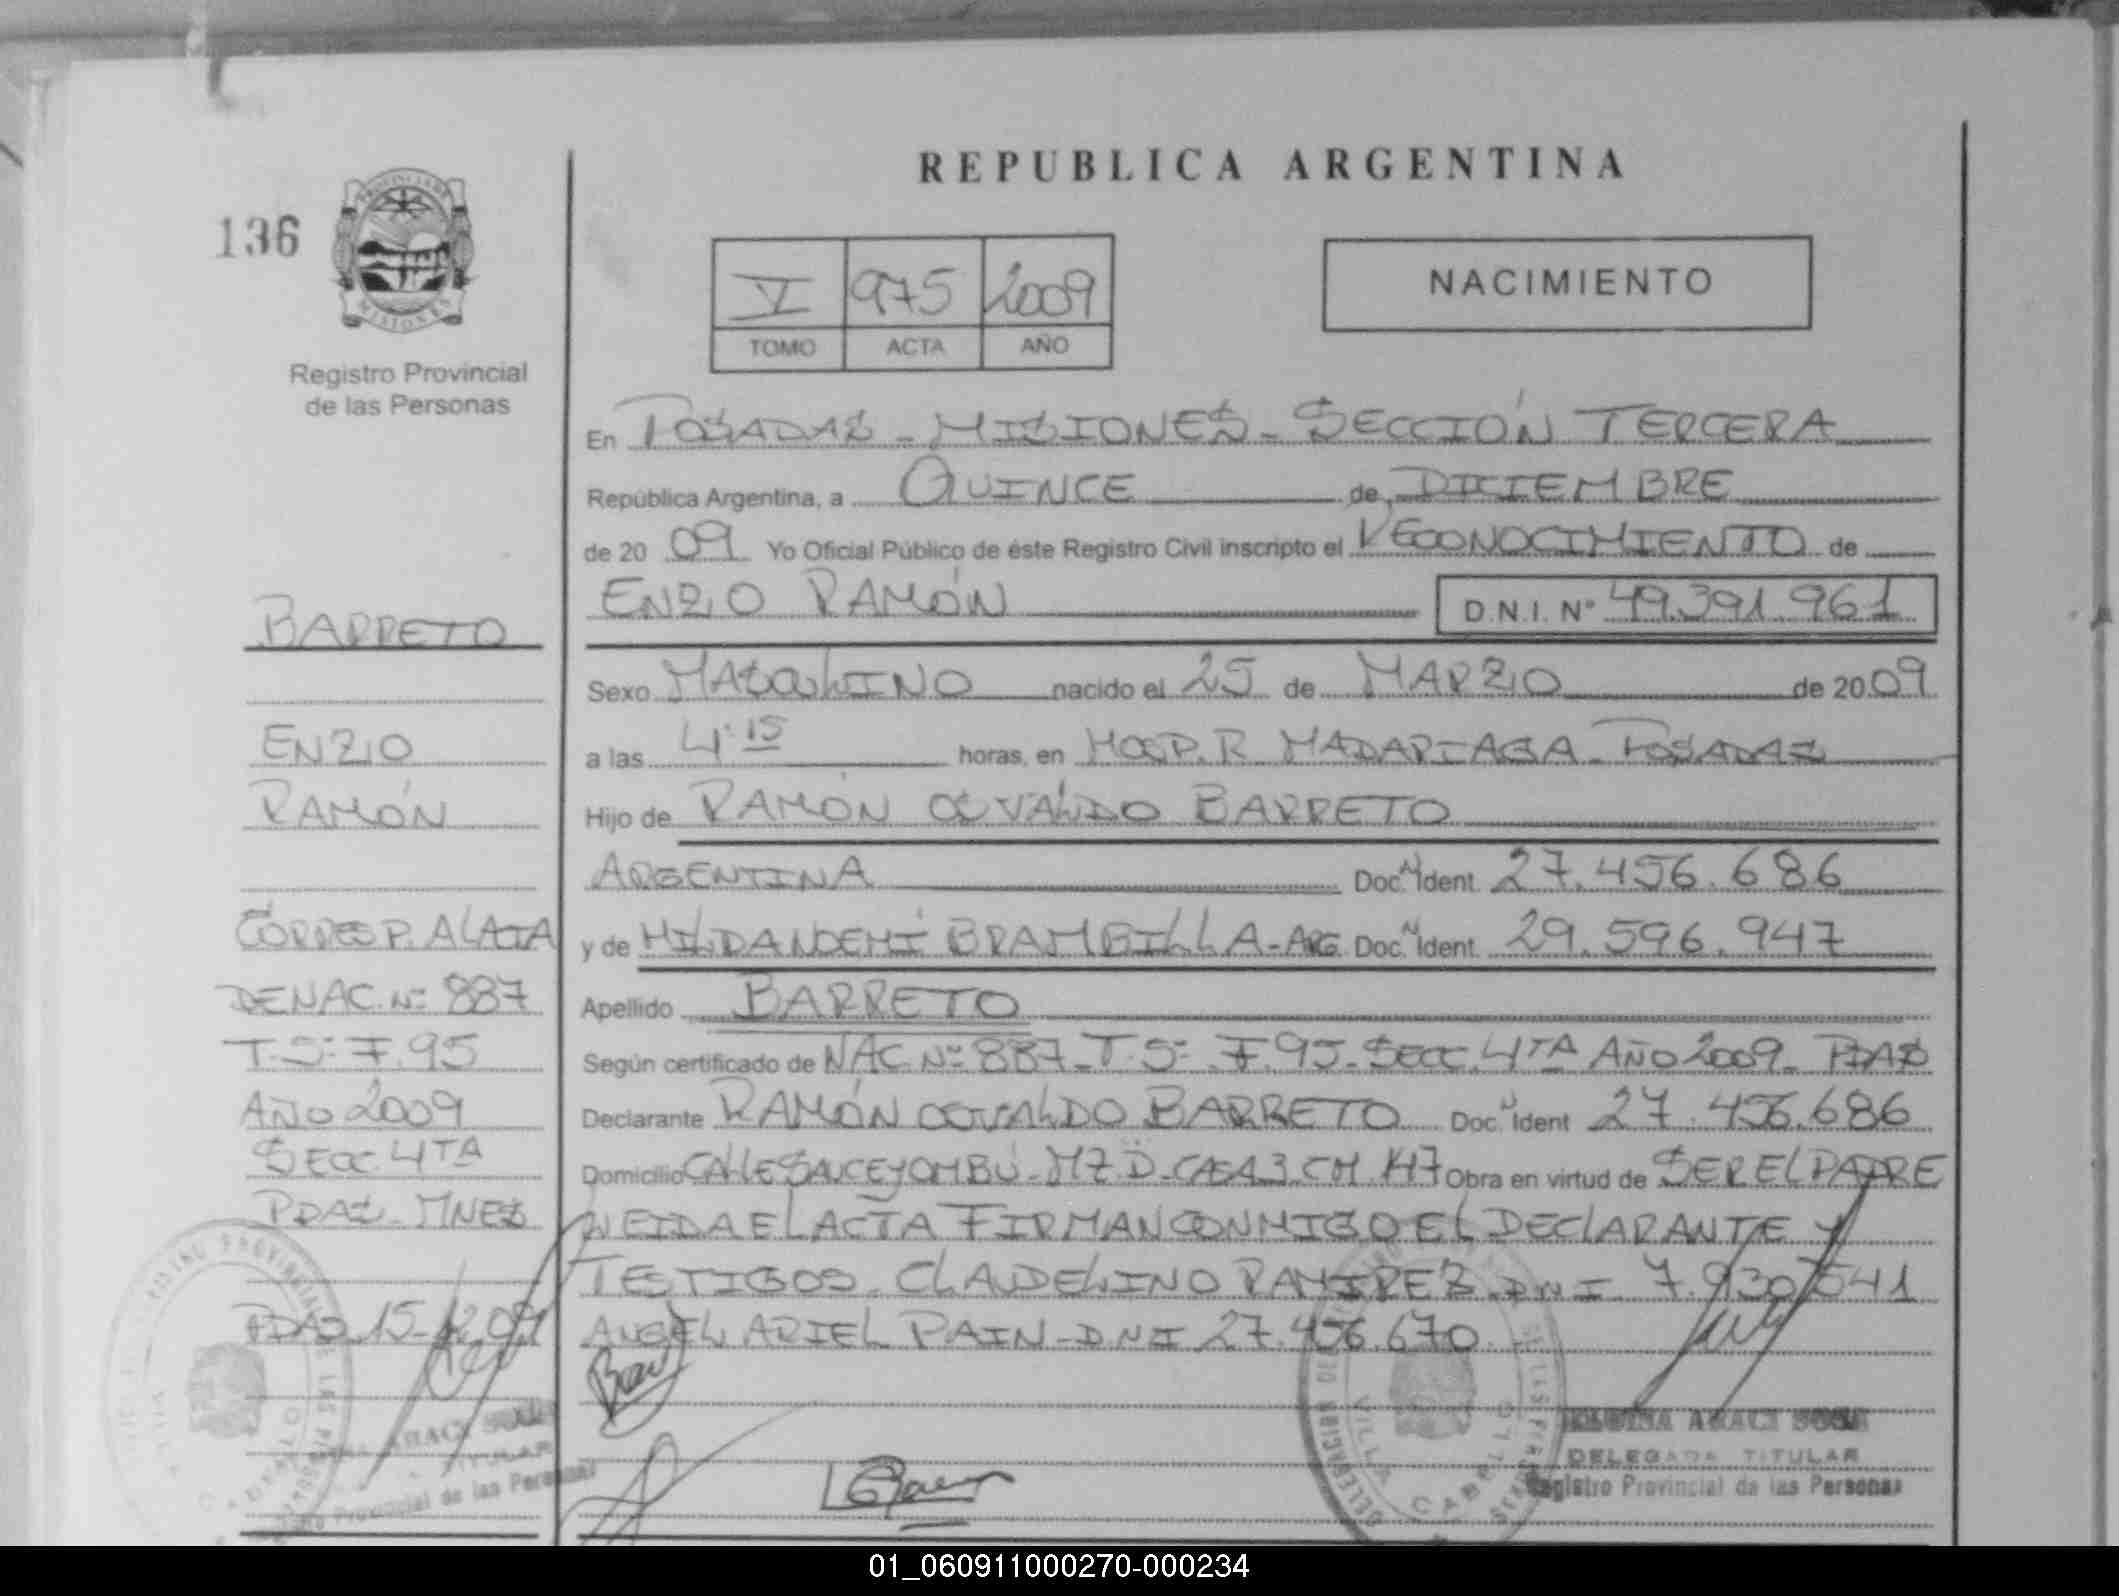 REPUBLICA ARGENTINA
136
PROVINCIA DE
MISIONES
Registro Provincial
de las Personas
V 975 2009
TOMO ACTA AÑO
NACIMIENTO
En POSADAS - MISIONES - SECCIÓN TERCERA
República Argentina, a QUINCE de DICIEMBRE
de 20 09 Yo Oficial Público de éste Registro Civil inscripto el RECONOCIMIENTO de
ENZO RAMÓN D.N.I. Nº 49.391.961
Sexo MASCULINO nacido el 25 de MARZO de 20 09
a las 4:15 horas, en HOSP. R. MADARIAGA - POSADAS
Hijo de RAMÓN OSVALDO BARRETO
ARGENTINA Doc. N Ident. 27.456.686
y de HILDA NOEMÍ BRAMBILLA - ARG. Doc. N Ident. 29.596.947
Apellido BARRETO
Según certificado de NAC. Nº 887 - T. 5º F. 95 - SECC. 4TA AÑO 2009 - PDAS
Declarante RAMÓN OSVALDO BARRETO Doc. N Ident 27.456.686
Domicilio CALLE SAUCE Y OMBÚ - MZ. D - CASA 3 - CH. 147 Obra en virtud de SER EL PADRE
LEIDA EL ACTA FIRMAN CONMIGO EL DECLARANTE Y
TESTIGOS - CLAUDELINO RAMIREZ - DNI 7.930.541
ANGEL ARIEL PAIN - DNI 27.456.670
BARRETO
ENZO
RAMÓN
CORRESP. AL ACTA
DE NAC. Nº 887
T. 5º F. 95
AÑO 2009
SECC. 4TA
PDAS - MNES
PDAS 15-12-09
ARACI SOSA
TITULAR
Provincial de las Personas
VILLA CABELLO
ARACI SOSA
DELEGADA TITULAR
Registro Provincial de las Personas
01_060911000270-000234